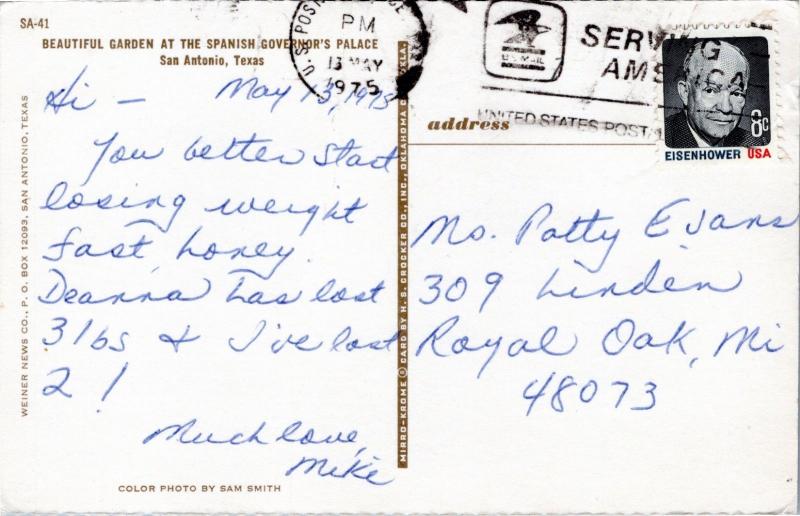 SA-41
BEAUTIFUL GARDEN AT THE SPANISH GOVERNOR'S PALACE
San Antonio, Texas
Hi - May 13, 1975
You better start
losing weight
fast, honey.
Deanna has lost
3 lbs & I've lost
2!
Much love,
Mike
COLOR PHOTO BY SAM SMITH
WEINER NEWS CO., P. O. BOX 12093, SAN ANTONIO, TEXAS
MIRRO-KROME ® CARD BY H. S. CROCKER CO., INC., OKLAHOMA CITY, OKLA.
U.S. POST
PM
13 MAY
1975
U.S. MAIL
SERVING
AMERICA
UNITED STATES POSTA
8c
EISENHOWER USA
address
Ms. Patty Evans
309 Linden
Royal Oak, Mi
48073